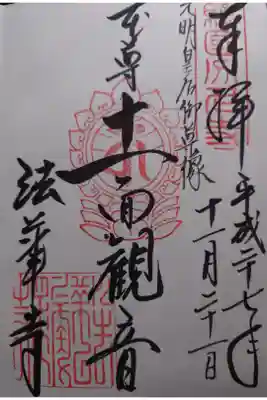 奉拝 平成二十七年
十一月二十一日
光明皇后御尊像
本尊 十一面觀音
法華寺